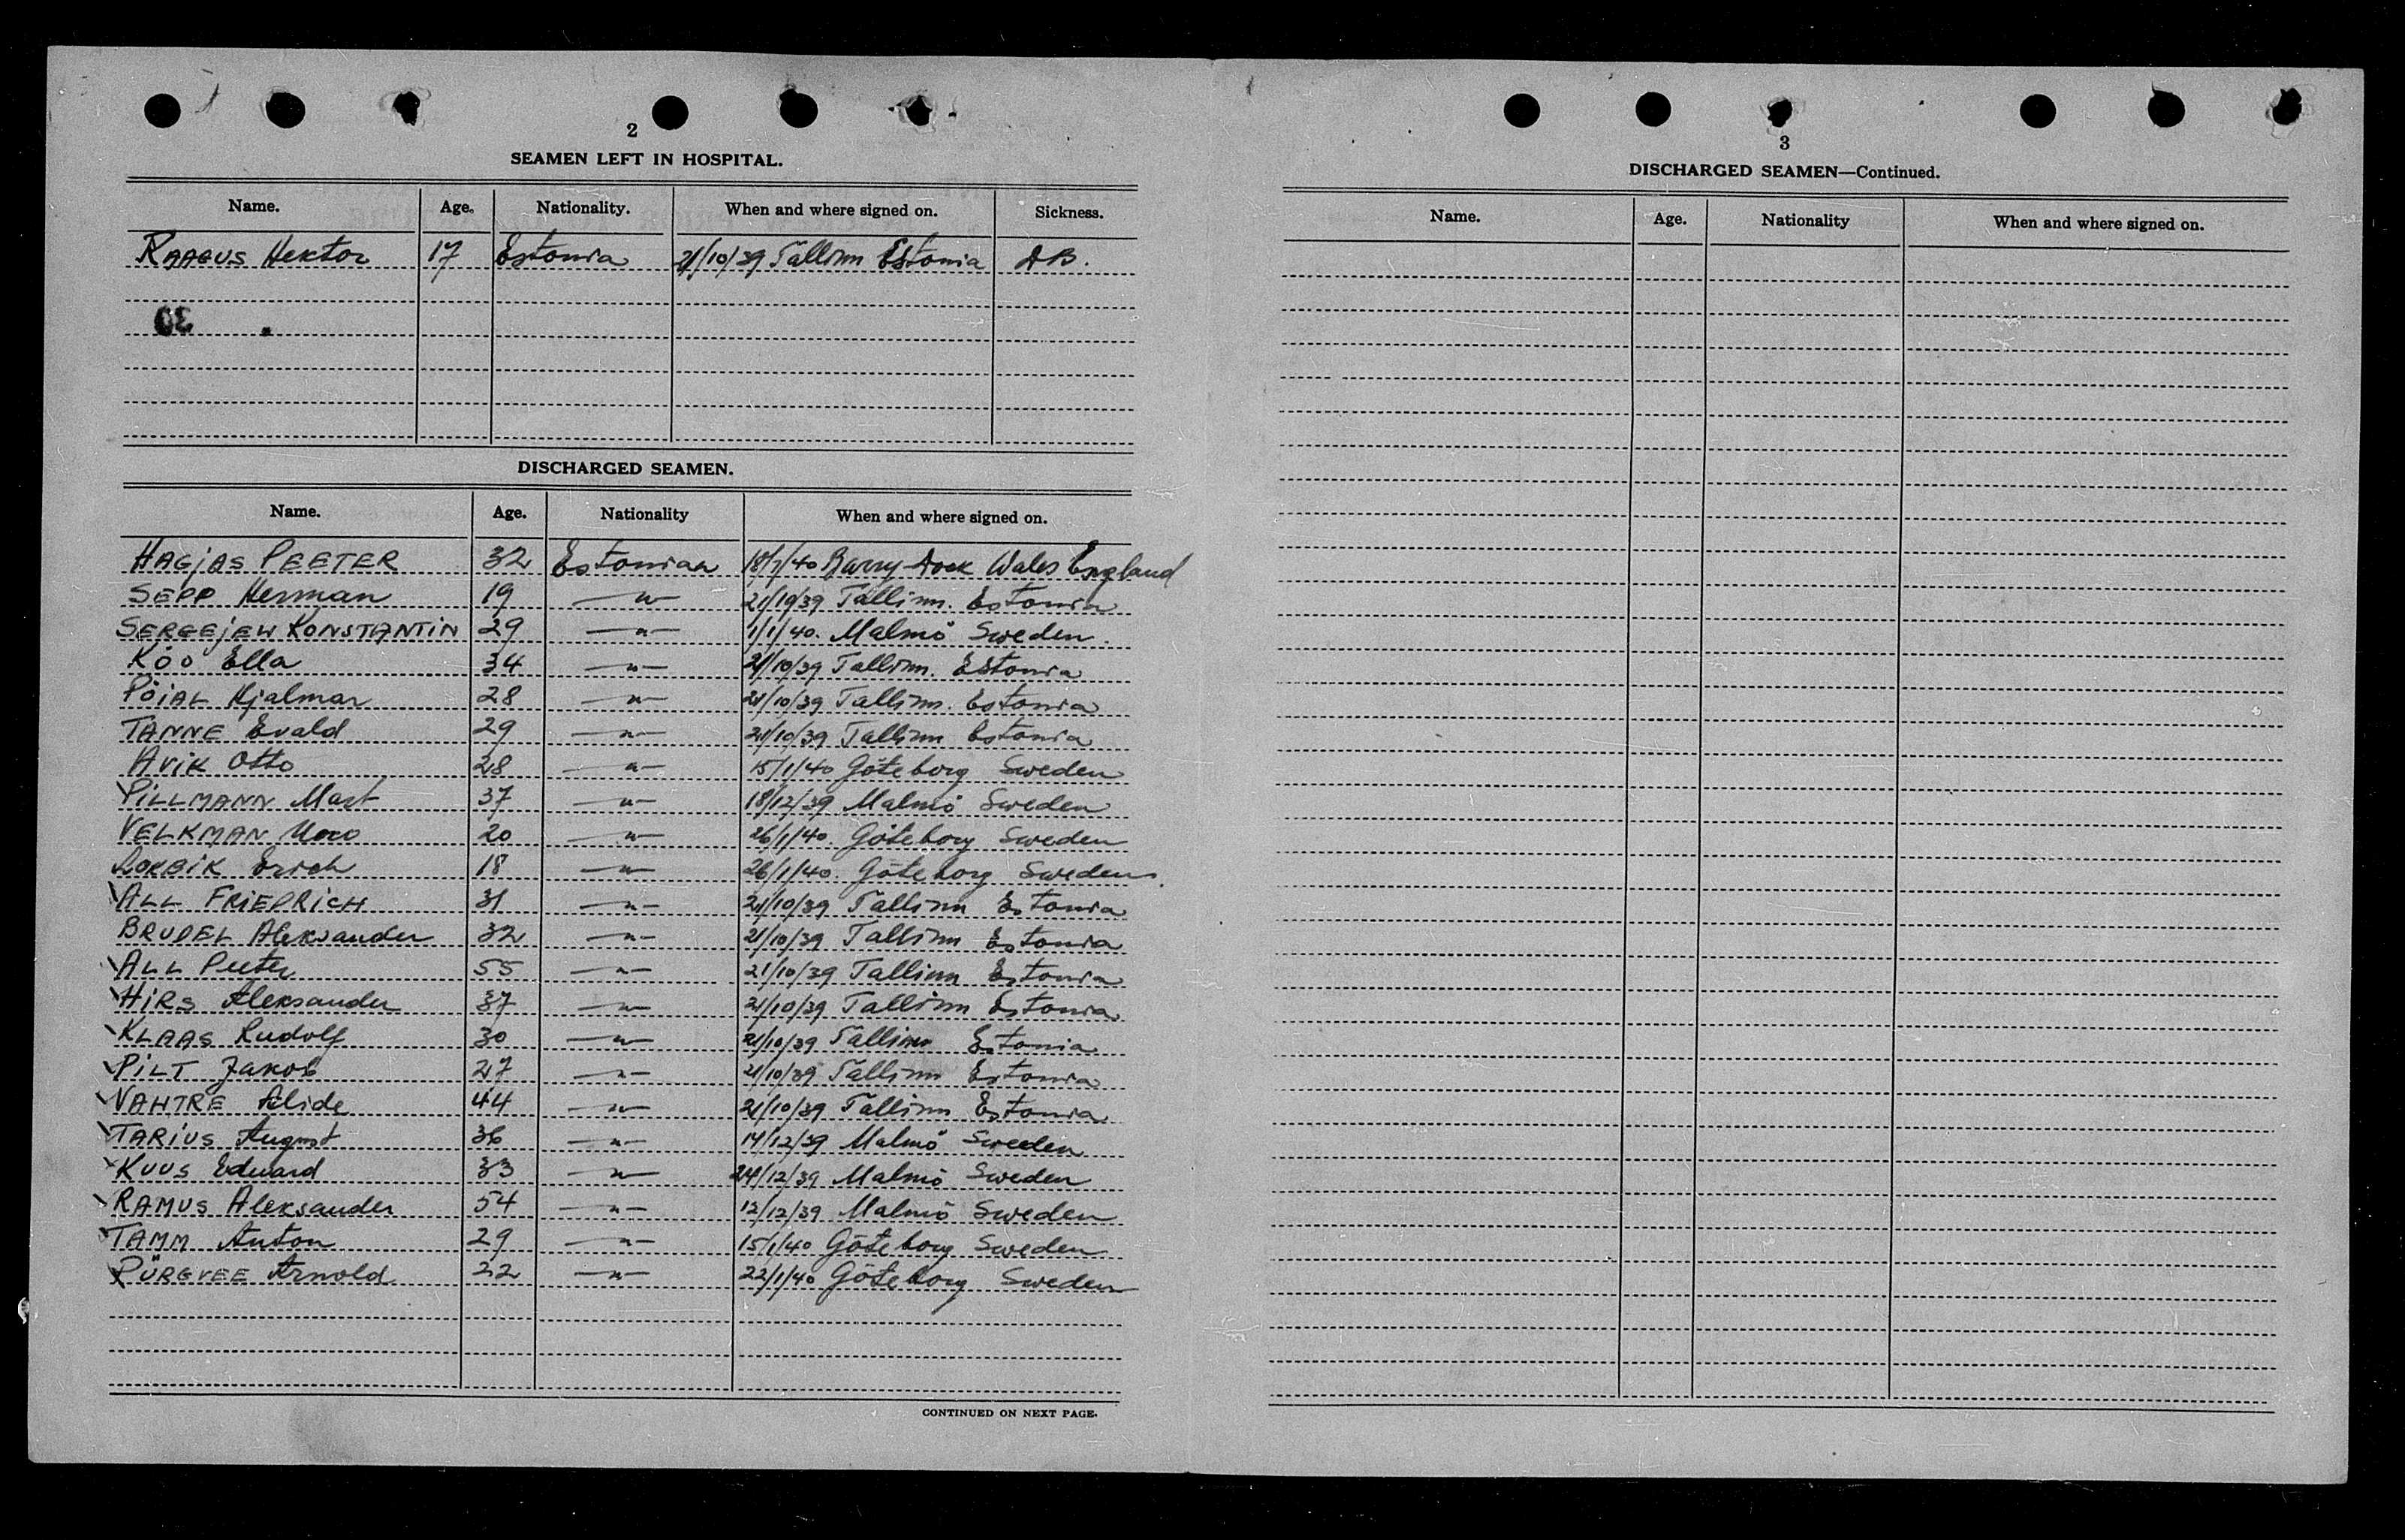 2
SEAMEN LEFT IN HOSPITAL.
Name. Age. Nationality. When and where signed on. Sickness.
RAAGUS Hektor 17 Estonia 21/10/39 Tallinn Estonia
30
DISCHARGED SEAMEN.
Name. Age. Nationality When and where signed on.
HAGjAS PEETER 32 Estonian 18/7/40 Barry-Dock Wales England
SEPP Herman 19 —"— 21/10/39 Tallinn. Estonia
SERGEjEW KONSTANTiN 29 —"— 1/1/40. Malmö Sweden.
Köo Ella 34 —"— 21/10/39 Tallinn. Estonia
PöiAL Hjalmar 28 —"— 21/10/39 Tallinn. Estonia
TANNE Evald 29 —"— 21/10/39 Tallinn Estonia
AviK Otto 28 —"— 15/1/40 Göteborg Sweden
PiLLMANN Mart 37 —"— 18/12/39 Malmö Sweden
VELKMAN 20 —"— 26/1/40. Göteborg Sweden
Erich 18 —"— 26/1/40. Göteborg Sweden.
ALL FRiEDRiCH 31 —"— 21/10/39 Tallinn Estonia
BRUDEL Aleksander 32 —"— 21/10/39 Tallinn Estonia
ALL Peeter 55 —"— 21/10/39 Tallinn Estonia
HiRS Aleksander 37 —"— 21/10/39 Tallinn Estonia
KLAAS Rudolf 30 —"— 21/10/39 Tallinn Estonia
PiLT Jakob 27 —"— 21/10/39 Tallinn Estonia
VAHTRE Alide 44 —"— 21/10/39 Tallinn Estonia
TARiUS August 36 —"— 14/12/39 Malmö Sweden
KUUS Eduard 33 —"— 24/12/39 Malmö Sweden
RAMUS Aleksander 54 —"— 12/12/39 Malmö Sweden
TAMM Anton 29 —"— 15/1/40 Göteborg Sweden
PÜRGVEE Arnold 22 —"— 22/1/40 Göteborg Sweden
CONTINUED ON NEXT PAGE.
3
DISCHARGED SEAMEN—Continued.
Name. Age. Nationality When and where signed on.